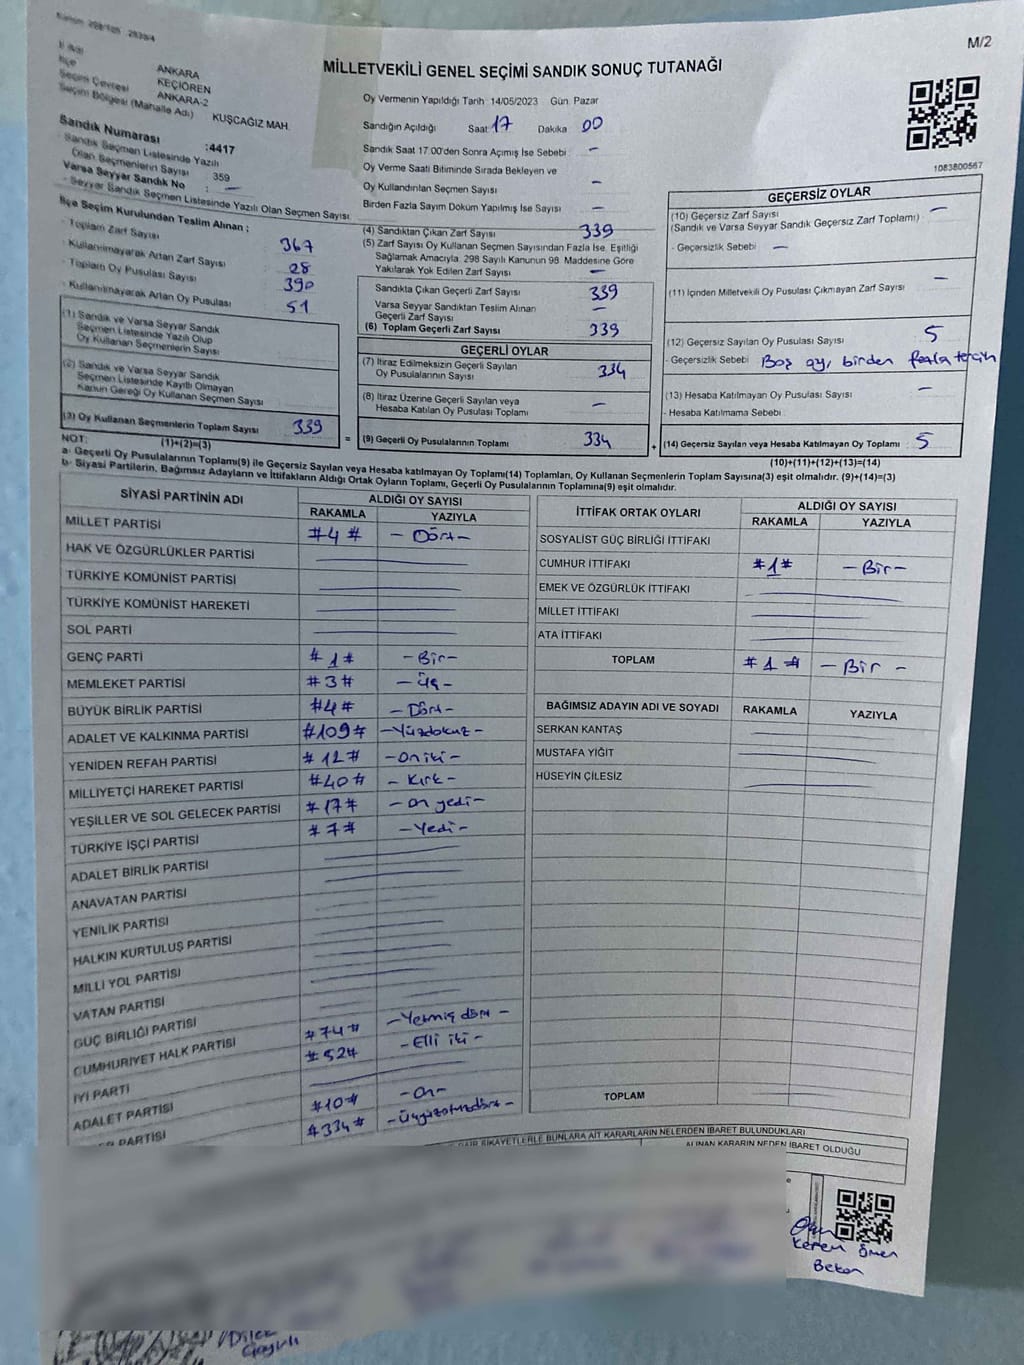 M/2
İl Adı
ANKARA
İlçe
KEÇİÖREN
Seçim Çevresi
ANKARA-2
Seçim Bölgesi (Mahalle Adı)
KUŞCAĞIZ MAH.
Sandık Numarası :4417
- Sandık Seçmen Listesinde Yazılı
Olan Seçmenlerin Sayısı 359
Varsa Seyyar Sandık No : -
- Seyyar Sandık Seçmen Listesinde Yazılı Olan Seçmen Sayısı
İlçe Seçim Kurulundan Teslim Alınan ;
- Toplam Zarf Sayısı 367
- Kullanılmayarak Artan Zarf Sayısı 28
- Toplam Oy Pusulası Sayısı 390
- Kullanılmayarak Artan Oy Pusulası 51
(1) Sandık ve Varsa Seyyar Sandık
Seçmen Listesinde Yazılı Olup
Oy Kullanan Seçmenlerin Sayısı
(2) Sandık ve Varsa Seyyar Sandık
Seçmen Listesinde Kayıtlı Olmayan
Kanun Gereği Oy Kullanan Seçmen Sayısı
(3) Oy Kullanan Seçmenlerin Toplam Sayısı 339
(1)+(2)=(3)
MİLLETVEKİLİ GENEL SEÇİMİ SANDIK SONUÇ TUTANAĞI
Oy Vermenin Yapıldığı Tarih :14/05/2023 Gün: Pazar
Sandığın Açıldığı Saat: 17 Dakika 00
Sandık Saat 17:00'den Sonra Açımış İse Sebebi : -
Oy Verme Saati Bitiminde Sırada Bekleyen ve
Oy Kullandırılan Seçmen Sayısı -
Birden Fazla Sayım Döküm Yapılmış İse Sayısı -
(4) Sandıktan Çıkan Zarf Sayısı 339
(5) Zarf Sayısı Oy Kullanan Seçmen Sayısından Fazla İse, Eşitliği
Sağlamak Amacıyla, 298 Sayılı Kanunun 98. Maddesine Göre
Yakılarak Yok Edilen Zarf Sayısı -
Sandıkta Çıkan Geçerli Zarf Sayısı 339
Varsa Seyyar Sandıktan Teslim Alınan
Geçerli Zarf Sayısı -
(6) Toplam Geçerli Zarf Sayısı 339
GEÇERLİ OYLAR
(7) İtiraz Edilmeksizin Geçerli Sayılan
Oy Pusulalarının Sayısı 334
(8) İtiraz Üzerine Geçerli Sayılan veya
Hesaba Katılan Oy Pusulası Toplamı -
= (9) Geçerli Oy Pusulalarının Toplamı 334
1083800567
GEÇERSİZ OYLAR
(10) Geçersiz Zarf Sayısı -
(Sandık ve Varsa Seyyar Sandık Geçersiz Zarf Toplamı)
- Geçersizlik Sebebi -
(11) İçinden Milletvekili Oy Pusulası Çıkmayan Zarf Sayısı -
(12) Geçersiz Sayılan Oy Pusulası Sayısı 5
- Geçersizlik Sebebi Boş oy, birden fazla tercih
(13) Hesaba Katılmayan Oy Pusulası Sayısı -
- Hesaba Katılmama Sebebi
+ (14) Geçersiz Sayılan veya Hesaba Katılmayan Oy Toplamı 5
(10)+(11)+(12)+(13)=(14)
NOT:
a- Geçerli Oy Pusulalarının Toplamı(9) ile Geçersiz Sayılan veya Hesaba katılmayan Oy Toplamı(14) Toplamları, Oy Kullanan Seçmenlerin Toplam Sayısına(3) eşit olmalıdır. (9)+(14)=(3)
b- Siyasi Partilerin, Bağımsız Adayların ve İttifakların Aldığı Ortak Oyların Toplamı, Geçerli Oy Pusulalarının Toplamına(9) eşit olmalıdır.
SİYASİ PARTİNİN ADI
ALDIĞI OY SAYISI
RAKAMLA YAZIYLA
MİLLET PARTİSİ #4# -Dört-
HAK VE ÖZGÜRLÜKLER PARTİSİ
TÜRKİYE KOMÜNİST PARTİSİ
TÜRKİYE KOMÜNİST HAREKETİ
SOL PARTİ
GENÇ PARTİ #1# -Bir-
MEMLEKET PARTİSİ #3# -Üç-
BÜYÜK BİRLİK PARTİSİ #4# -Dört-
ADALET VE KALKINMA PARTİSİ #109# -Yüzdokuz-
YENİDEN REFAH PARTİSİ #12# -Oniki-
MİLLİYETÇİ HAREKET PARTİSİ #40# -Kırk-
YEŞİLLER VE SOL GELECEK PARTİSİ #17# -on yedi-
TÜRKİYE İŞÇİ PARTİSİ #7# -Yedi-
ADALET BİRLİK PARTİSİ
ANAVATAN PARTİSİ
YENİLİK PARTİSİ
HALKIN KURTULUŞ PARTİSİ
MİLLİ YOL PARTİSİ
VATAN PARTİSİ
GÜÇ BİRLİĞİ PARTİSİ
CUMHURİYET HALK PARTİSİ #74# -Yetmiş dört-
İYİ PARTİ #52# -Elli iki-
ADALET PARTİSİ
PARTİSİ #10# -On-
#334# -Üçyüzotuzdört-
İTTİFAK ORTAK OYLARI
ALDIĞI OY SAYISI
RAKAMLA YAZIYLA
SOSYALİST GÜÇ BİRLİĞİ İTTİFAKI
CUMHUR İTTİFAKI #1# -Bir-
EMEK VE ÖZGÜRLÜK İTTİFAKI
MİLLET İTTİFAKI
ATA İTTİFAKI
TOPLAM #1# -Bir-
BAĞIMSIZ ADAYIN ADI VE SOYADI RAKAMLA YAZIYLA
SERKAN KANTAŞ
MUSTAFA YİĞİT
HÜSEYİN ÇİLESİZ
TOPLAM
DAİR ŞİKAYETLERLE BUNLARA AİT KARARLARIN NELERDEN İBARET BULUNDUKLARI
ALINAN KARARIN NEDEN İBARET OLDUĞU
Kerem Ömer